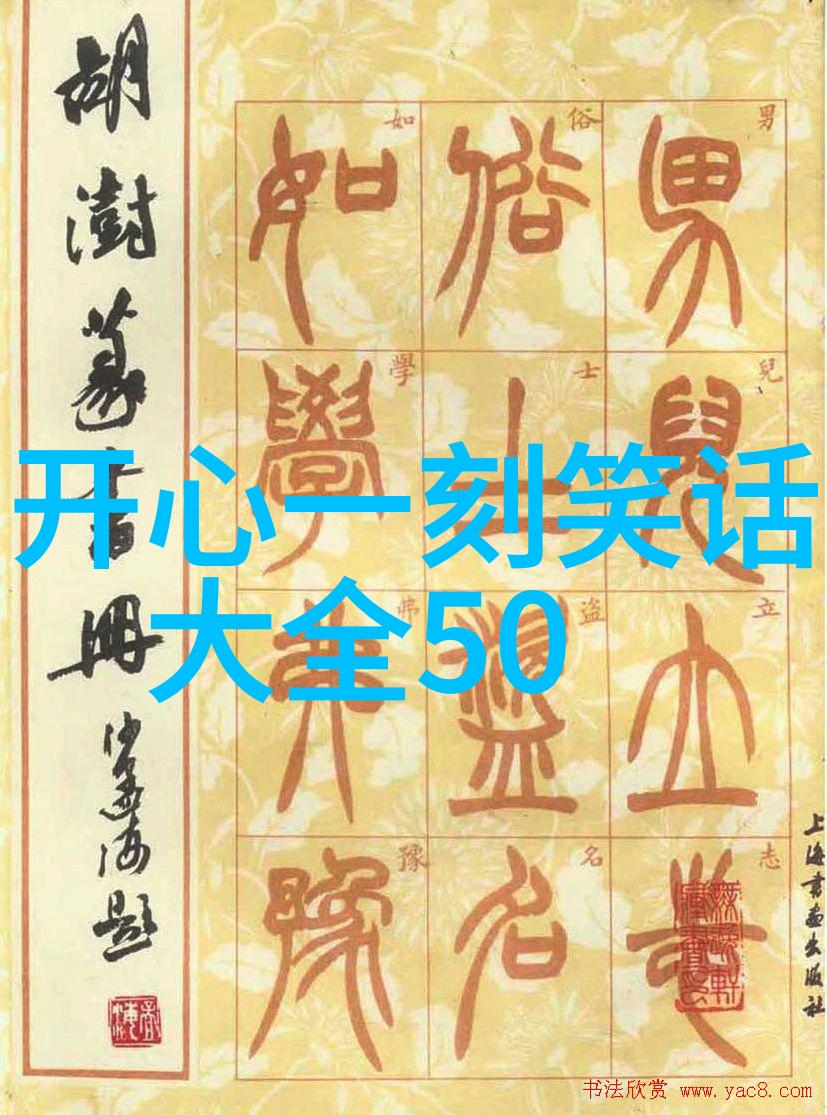 胡澍篆書冊
沙孟海題
男兒立志
俗士盜名
如學弗豫
开心一刻笑话
大全50
上海書畫出版社
书法欣赏 www.yac8.com